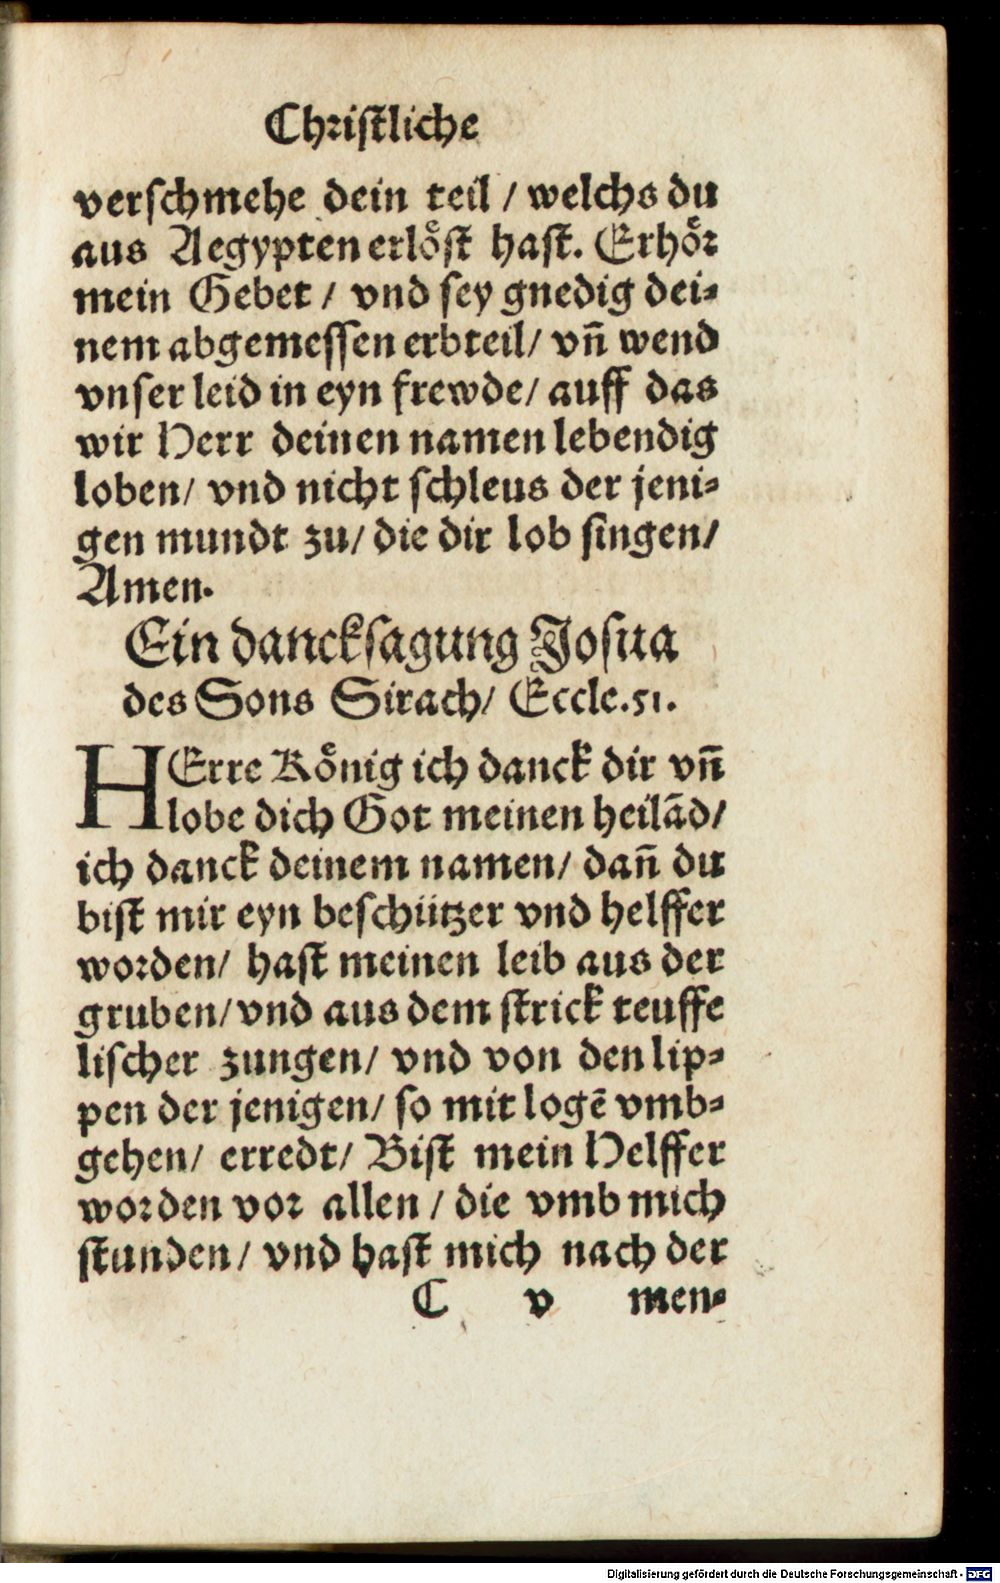 Christliche
verschmehe dein teil / welchs du
aus Aegypten erlöst hast. Erhör
mein Gebet / vnd sey gnedig dei-
nem abgemessen erbteil / vñ wend
vnser leid in eyn frewde / auff das
wir Herr deinen namen lebendig
loben / vnd nicht schleus der jeni-
gen mundt zu / die dir lob singen /
Amen.
Ein dancksagung Josua
des Sons Sirach / Eccle. 51.
HErre König ich danck dir vñ
lobe dich Got meinen heilãd /
ich danck deinem namen / dañ du
bist mir eyn beschützer vnd helffer
worden / hast meinen leib aus der
gruben / vnd aus dem strick teuffe
lischer zungen / vnd von den lip-
pen der jenigen / so mit logẽ vmb-
gehen / erredt / Bist mein Helffer
worden vor allen / die vmb mich
stunden / vnd hast mich nach der
C v men-
Digitalisierung gefördert durch die Deutsche Forschungsgemeinschaft - DFG